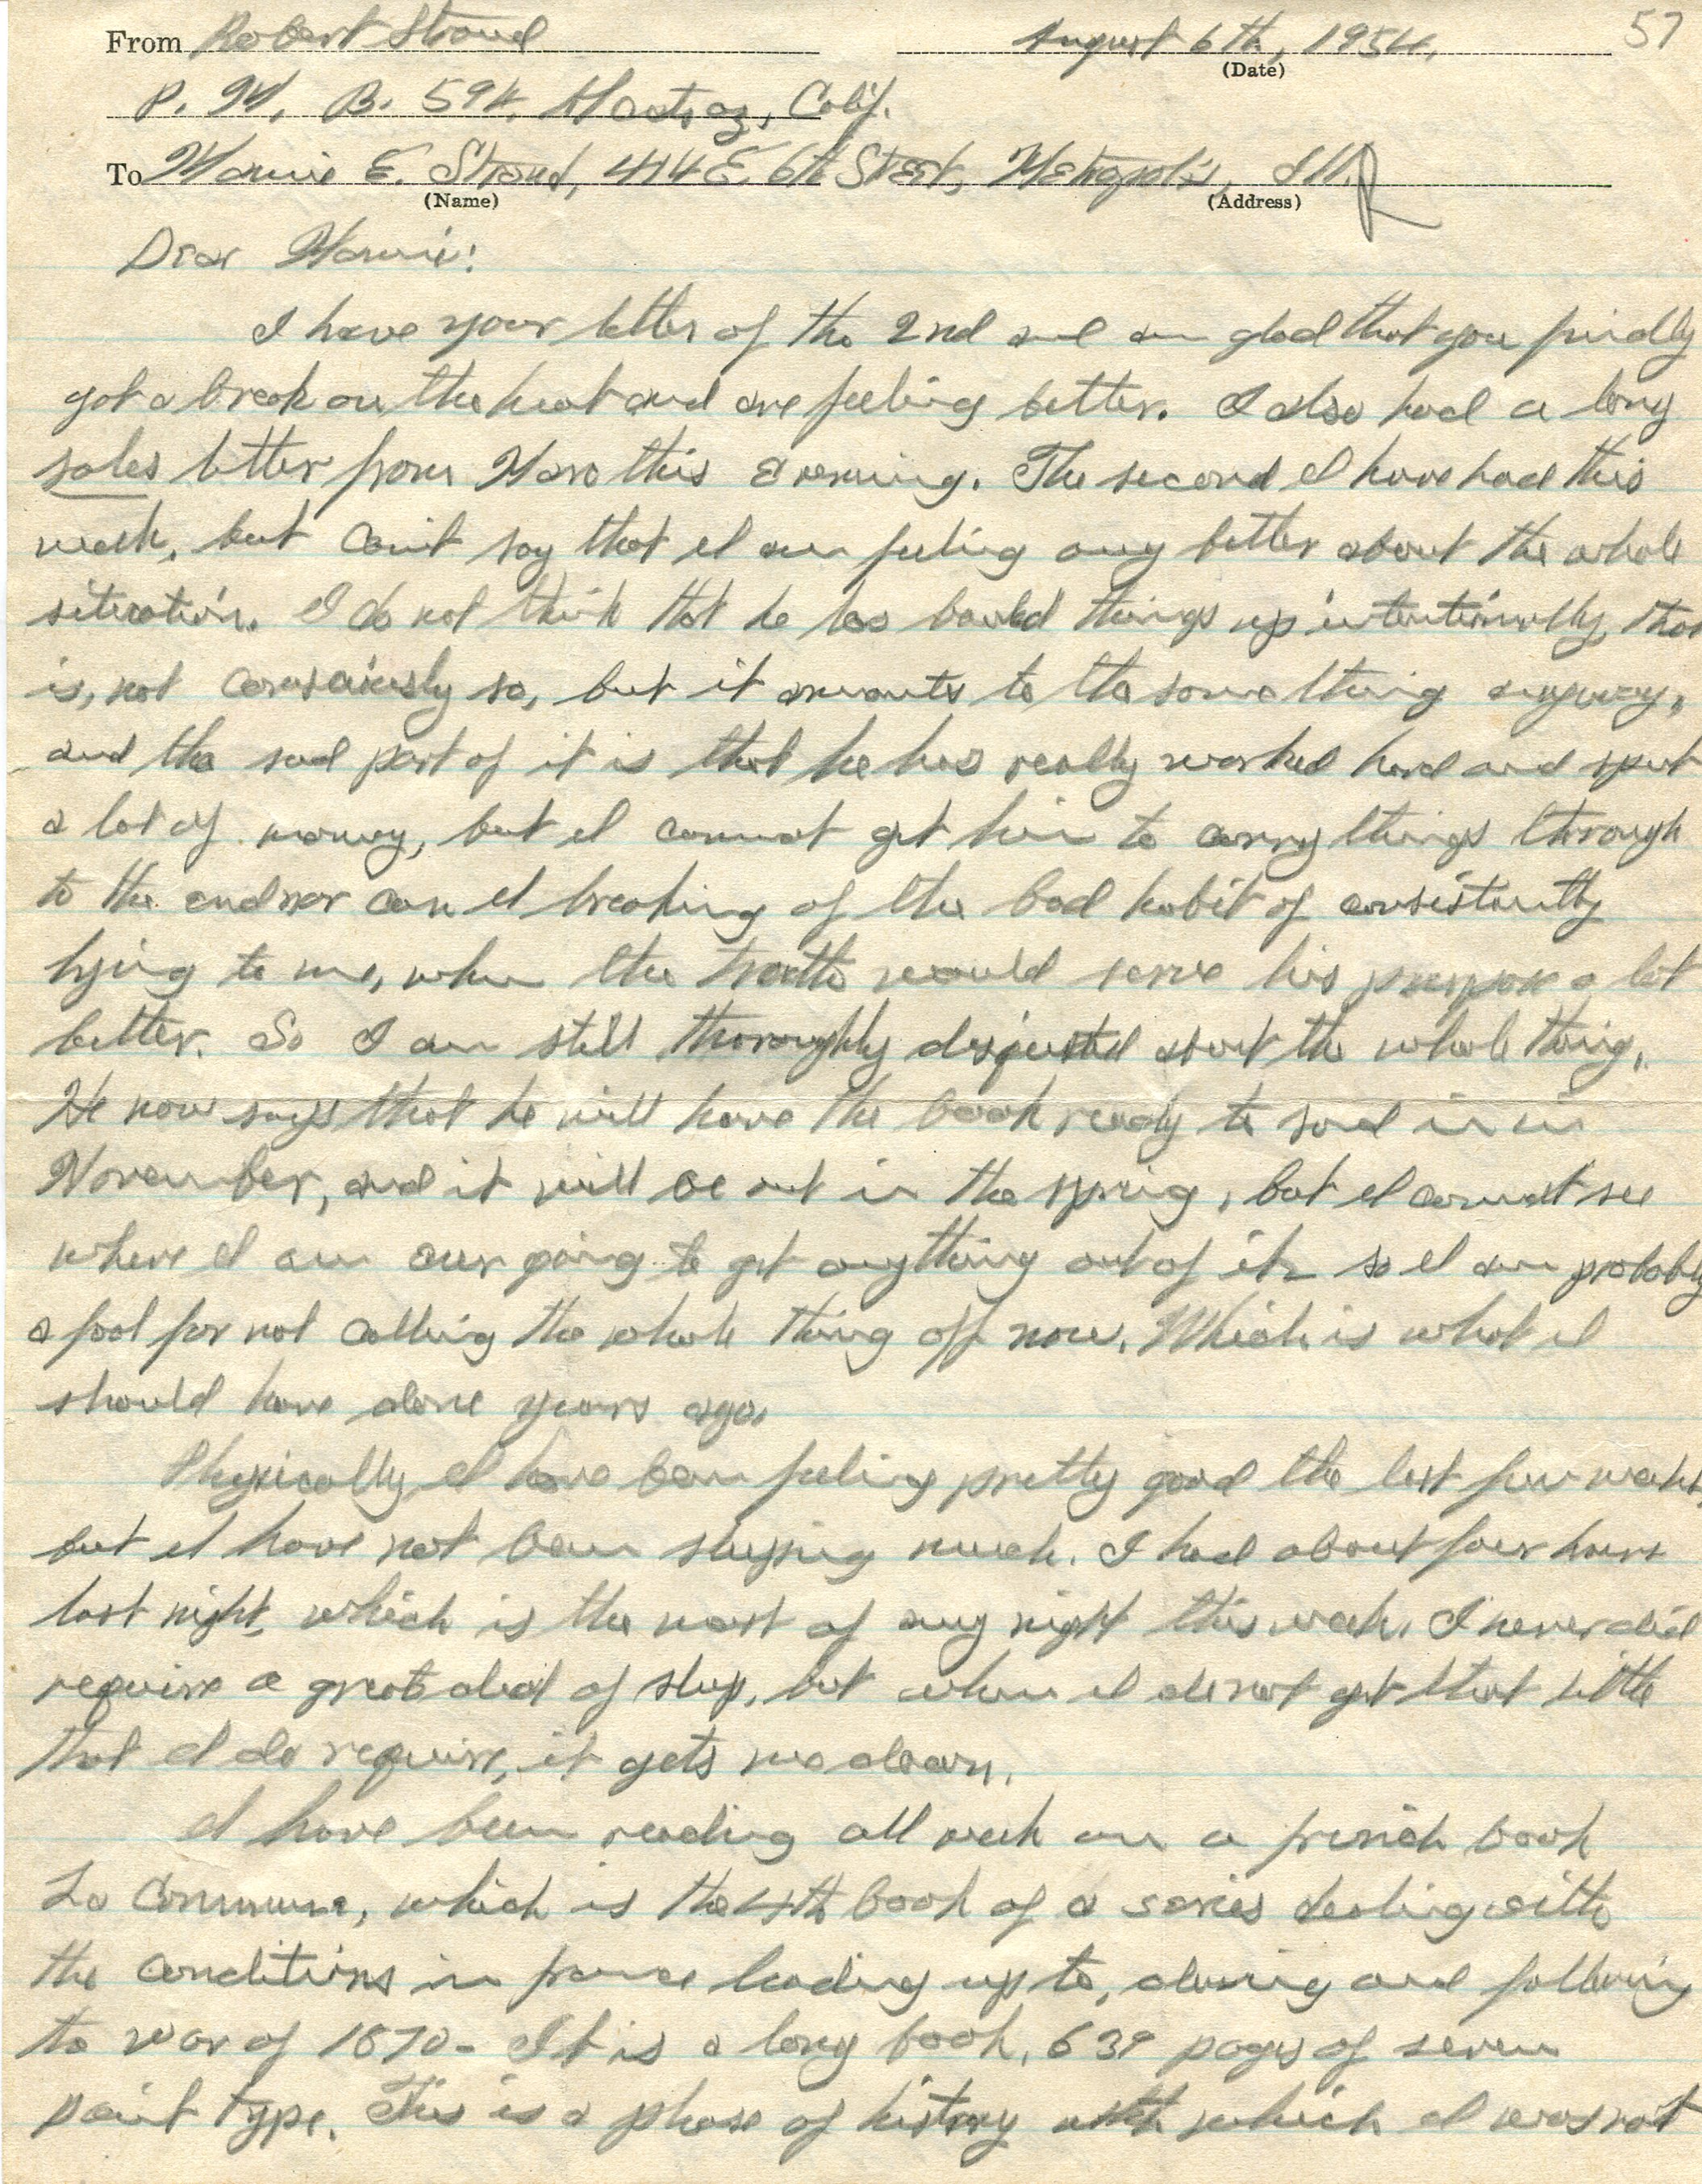 57
From Robert Stroud August 6th, 1954.
(Date)
P. M. B. 594. Alcatraz, Calif.
To Mamie E. Stroud, 414 E. 6th Street, Metropolis, Ill.
(Name) (Address)
Dear Mamie:
I have your letter of the 2nd and am glad that you finally
got a break on the heat and are feeling better. I also had a long
sales letter from Marc this evening. The second I have had this
week, but can't say that I am feeling any better about the whole
situation. I do not think that he has bawled things up intentionally, that
is, not consciously so, but it amounts to the same thing anyway,
and the sad part of it is that he has really worked hard and spent
a lot of money, but I cannot get him to carry things through
to the end nor can I break him of the bad habit of consistantly
lying to me, when the truth would serve his purpose a lot
better. So I am still thoroughly disgusted about the whole thing.
He now says that he will have the book ready to send in in
November, and it will be out in the spring, but I cannot see
where I am ever going to get anything out of it so I am probably
a fool for not calling the whole thing off now. Which is what I
should have done years ago.
Physically, I have been feeling pretty good the last few weeks,
but I have not been sleeping much. I had about four hours
last night, which is the most of any night this week. I never did
require a great deal of sleep, but when I do not get that little
that I do require, it gets me down.
I have been reading all week on a french book
La Commune, which is the 4th book of a series dealing with
the conditions in france leading up to, during and following
to war of 1870- It is a long book, 639 pages of seven
point type. This is a phase of history with which I was not